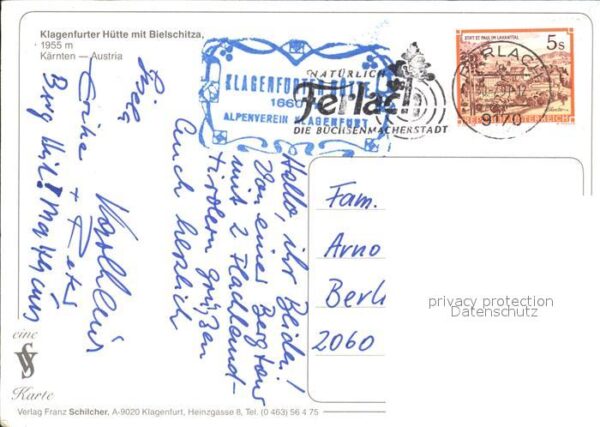 Klagenfurter Hütte mit Bielschitza,
1955 m
Kärnten – Austria
KLAGENFURTER HÜTTE
1660
ALPENVEREIN KLAGENFURT
NATÜRLICH
Ferlach
DIE BÜCHSENMACHERSTADT
FERLACH
9170
STIFT ST. PAUL IM LAVANTTAL
5s
REPUBLIK ÖSTERREICH
Hallo, ihr Beiden!
Von einer Bergtour
mit 2 Flachland-
tirolern grüßen
Euch herzlich
Karlheinz
+ Peter
Berg Heil!
Fam.
Arno
Berk
2060
privacy protection
Datenschutz
eine
VS
Karte
Verlag Franz Schilcher, A-9020 Klagenfurt, Heinzgasse 8, Tel. (0 463) 56 4 75